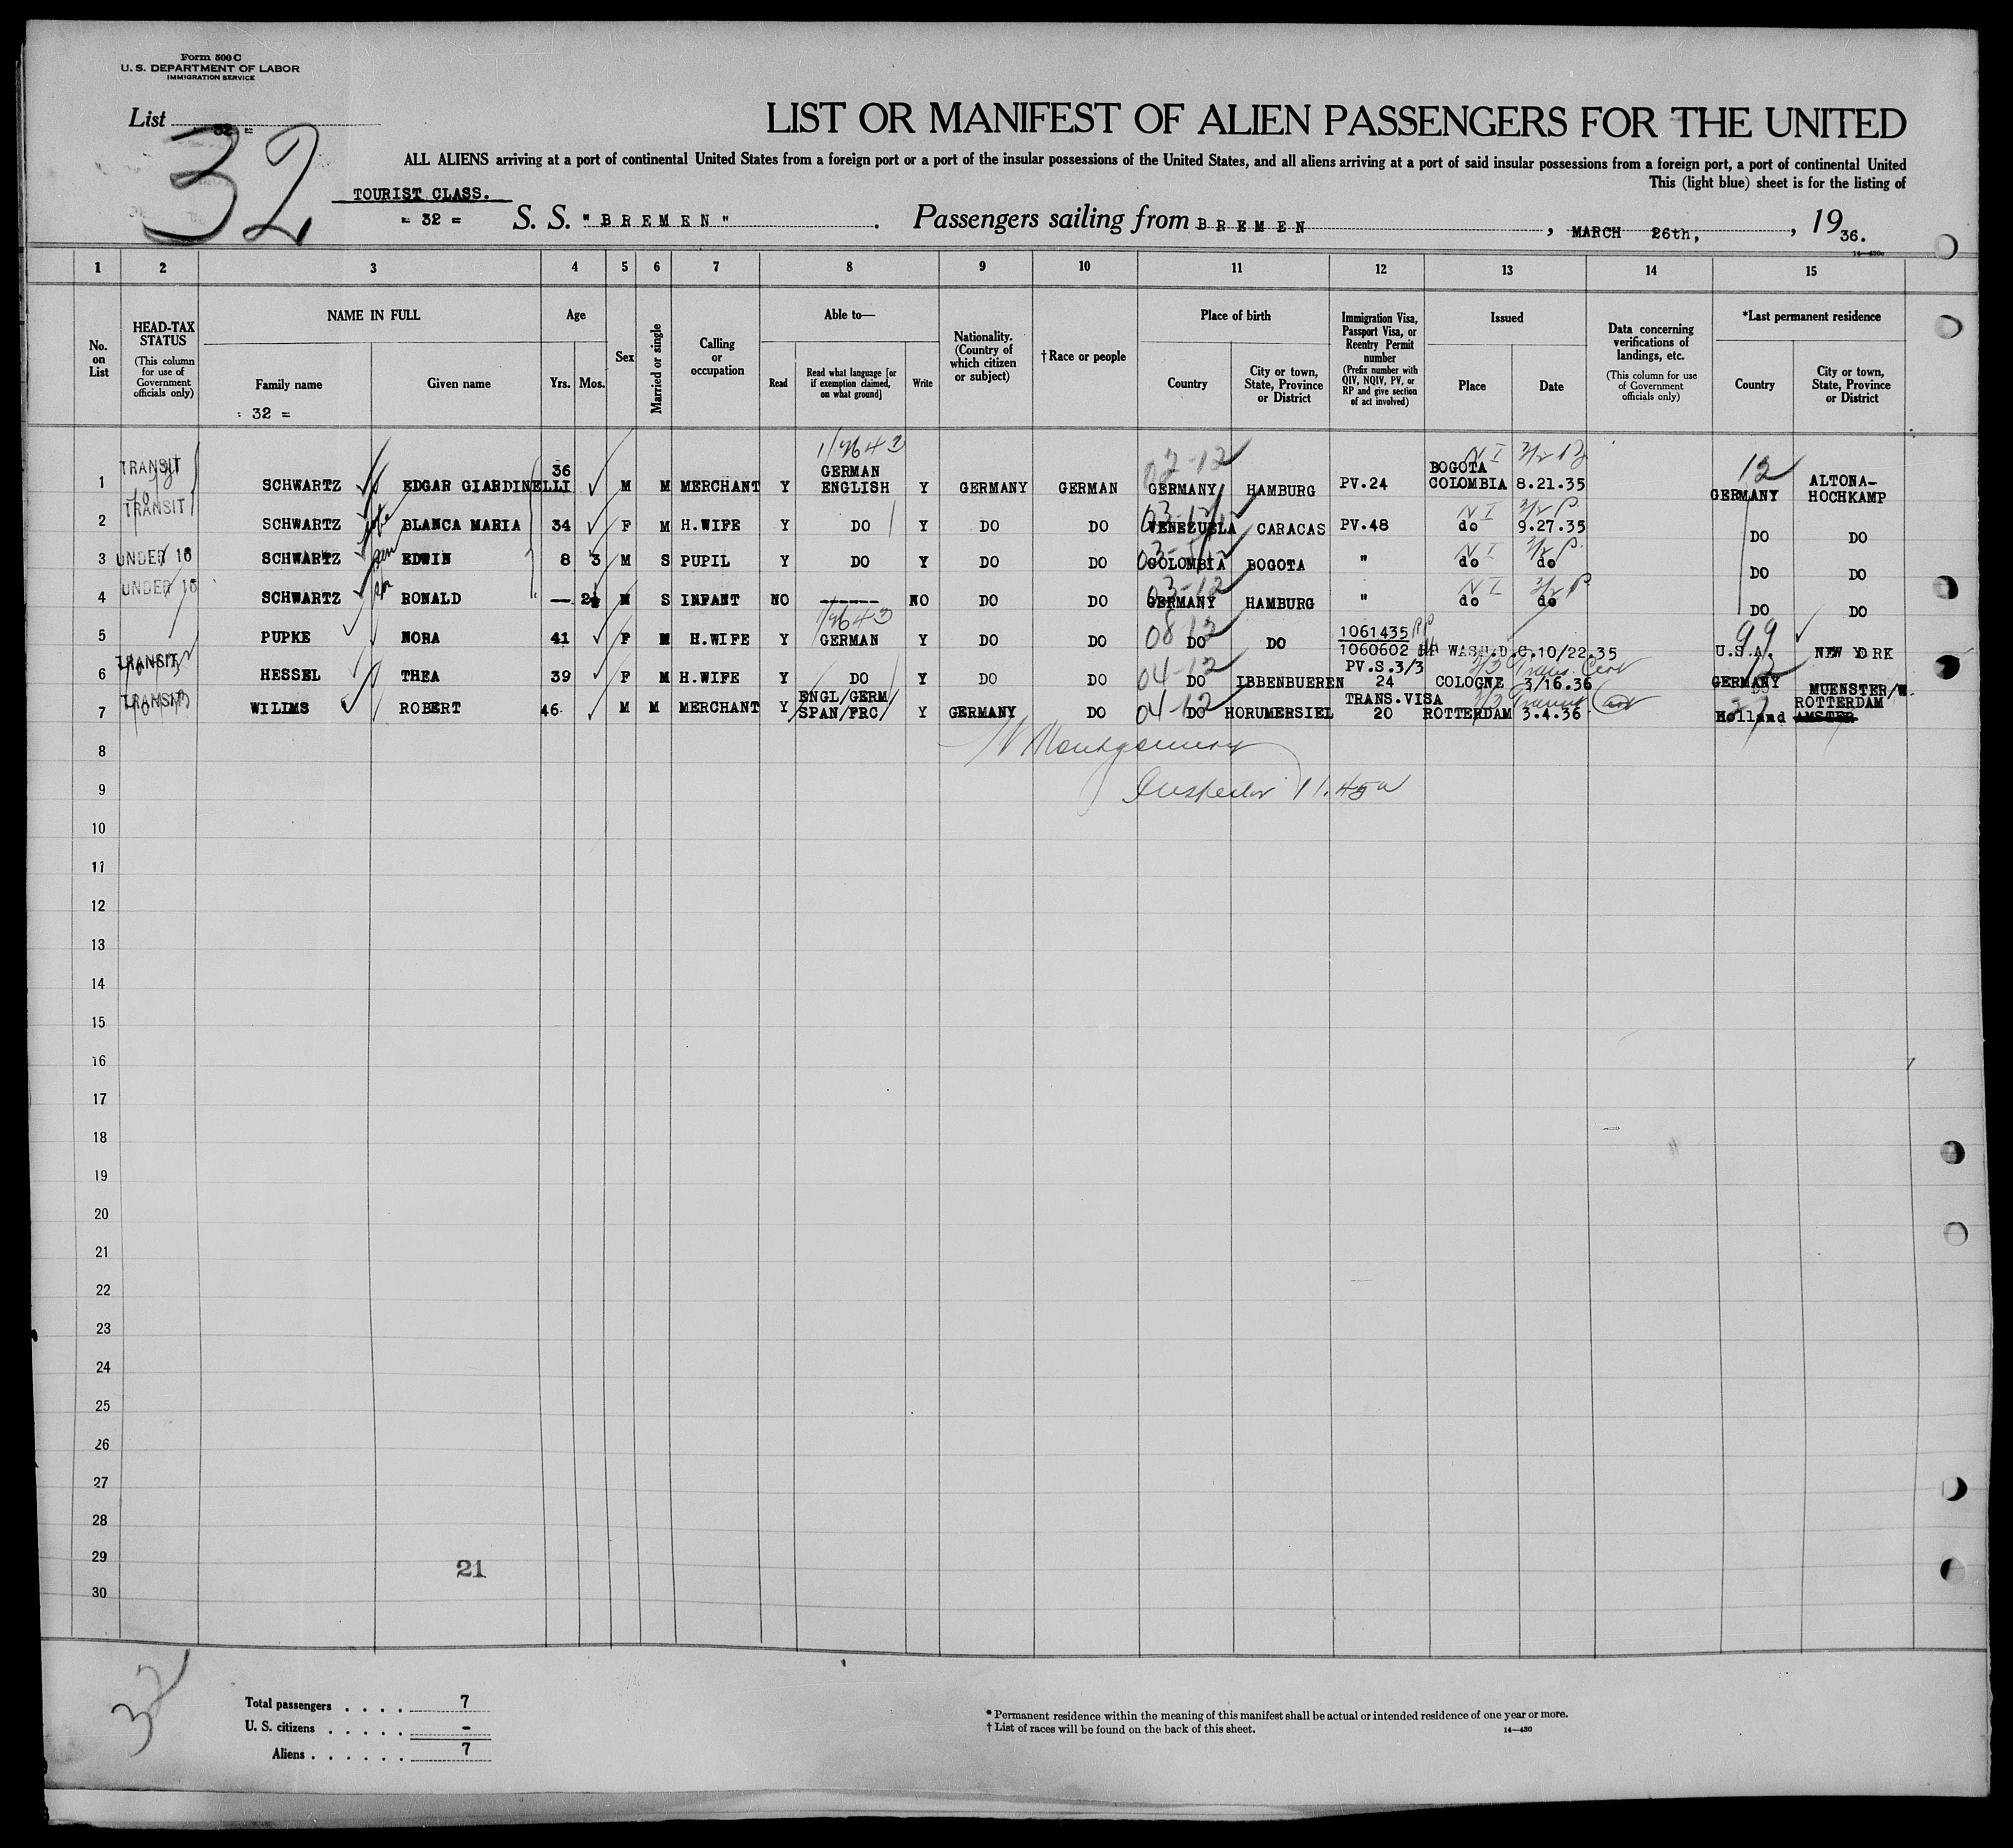 Form 500 C
U. S. DEPARTMENT OF LABOR
IMMIGRATION SERVICE
List = 32 =
32
LIST OR MANIFEST OF ALIEN PASSENGERS FOR THE UNITED
ALL ALIENS arriving at a port of continental United States from a foreign port or a port of the insular possessions of the United States, and all aliens arriving at a port of said insular possessions from a foreign port, a port of continental United
This (light blue) sheet is for the listing of
TOURIST CLASS.
= 32 = S. S. "BREMEN". Passengers sailing from BREMEN, MARCH 26th, 1936.
14—430c
1 2 3 4 5 6 7 8 9 10 11 12 13 14 15
No. on List
HEAD-TAX STATUS
(This column for use of Government officials only)
NAME IN FULL
Family name
Given name
= 32 =
Age
Yrs. Mos.
Sex
Married or single
Calling or occupation
Able to—
Read
Read what language [or if exemption claimed, on what ground]
Write
Nationality. (Country of which citizen or subject)
† Race or people
Place of birth
Country
City or town, State, Province or District
Immigration Visa, Passport Visa, or Reentry Permit number
(Prefix number with QIV, NQIV, PV, or RP and give section of act involved)
Issued
Place
Date
Data concerning verifications of landings, etc.
(This column for use of Government officials only)
*Last permanent residence
Country
City or town, State, Province or District
1 TRANSIT SCHWARTZ EDGAR GIARDINELLI 36 M M MERCHANT Y GERMAN ENGLISH Y GERMANY GERMAN GERMANY HAMBURG PV.24 BOGOTA COLOMBIA 8.21.35 NI 12 GERMANY ALTONA-HOCHKAMP
2 TRANSIT SCHWARTZ BLANCA MARIA 34 F M H.WIFE Y DO Y DO DO 03-12 VENEZUELA CARACAS PV.48 NI do 9.27.35 DO DO
3 UNDER 16 SCHWARTZ EDWIN 8 3 M S PUPIL Y DO Y DO DO COLOMBIA BOGOTA " NI do do DO DO
4 UNDER 16 SCHWARTZ RONALD — M S INFANT NO ------ NO DO DO 03-12 GERMANY HAMBURG " NI do do DO DO
5 PUPKE NORA 41 F M H.WIFE Y GERMAN Y DO DO 08-12 DO DO 1061435 RP 1060602 WASH.D.C. 10/22.35 99 U.S.A. NEW YORK
6 TRANSIT HESSEL THEA 39 F M H.WIFE Y DO Y DO DO 04-12 DO IBBENBUEREN PV.S.3/3 24 COLOGNE 3/16.36 12 GERMANY MUENSTER/W.
7 TRANSIT WILIMS ROBERT 46 M M MERCHANT Y ENGL/GERM/ SPAN/FRC/ Y GERMANY DO 04-12 DO HORUMERSIEL TRANS.VISA 20 ROTTERDAM 3.4.36 Holland ROTTERDAM AMSTER
8 Montgomery
9 Inspector 11.45a
10
11
12
13
14
15
16
17
18
19
20
21
22
23
24
25
26
27
28
29
21
30
32
Total passengers . . . . 7
U. S. citizens . . . . . -
Aliens . . . . . . 7
* Permanent residence within the meaning of this manifest shall be actual or intended residence of one year or more.
† List of races will be found on the back of this sheet. 14—430